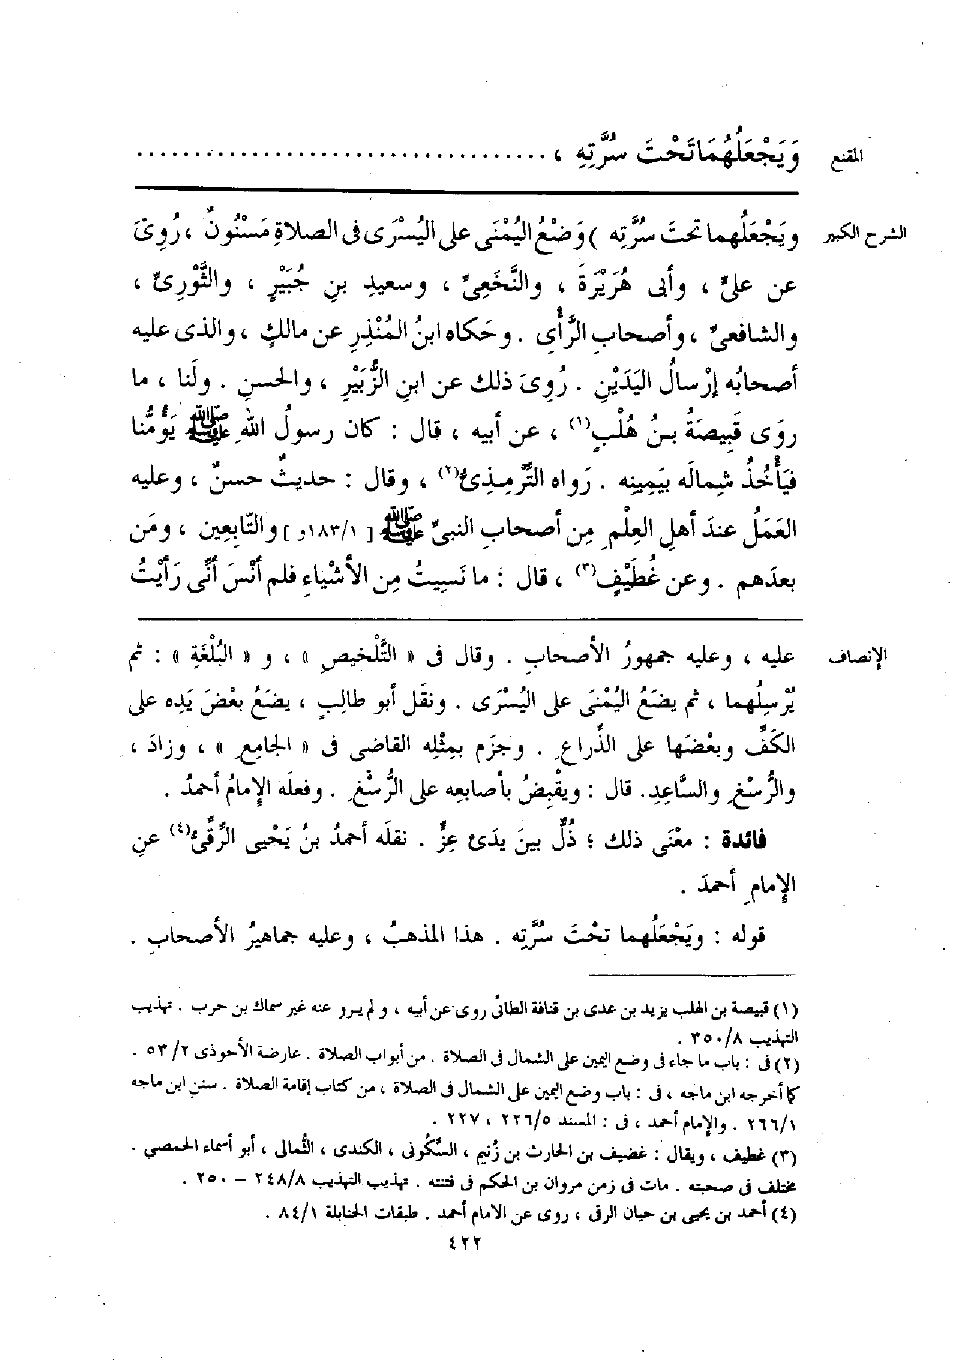 المقنع
وَيَجْعَلُهُمَا تَحْتَ سُرَّتِهِ ، ....................................
الشرح الكبير
ويَجْعَلُهما تحتَ سُرَّتِه ) وَضْعُ اليُمْنَى على اليُسْرَى فى الصلاةِ مَسْنُونٌ ، رُوِىَ
عن علىٍّ ، وأبى هُرَيْرَةَ ، والنَّخَعِىِّ ، وسعيدِ بنِ جُبَيْرٍ ، والثَّوْرِىِّ ،
والشافعىِّ ، وأصحابِ الرَّأْىِ . وحَكاه ابنُ المُنْذِرِ عن مالكٍ ، والذى عليه
أصحابُه إرْسالُ اليَدَيْنِ . رُوِىَ ذلك عن ابنِ الزُّبَيْرِ ، والحسنِ . ولَنا ، ما
روَى قَبِيصَةُ بنُ هُلْبٍ(١) ، عن أبيه ، قال : كان رسولُ اللهِ ﷺ يَؤُمُّنا
فيَأْخُذُ شِمالَه بيَمِينِه . رَواه التِّرمِذِىُّ(٢) ، وقال : حديثٌ حسنٌ ، وعليه
العَمَلُ عندَ أهلِ العِلْمِ مِن أصحابِ النبىِّ ﷺ [ ١٨٣/١و ] والتَّابِعين ، ومَن
بعدَهم . وعن غُطَيْفٍ(٣) ، قال : ما نَسِيتُ مِن الأشْياءِ فلم أَنْسَ أنِّى رَأَيْتُ
الإنصاف
عليه ، وعليه جمهورُ الأصحابِ . وقال فى « التَّلْخيصِ » ، و « البُلْغَةِ » : ثم
يُرْسِلُهما ، ثم يضَعُ اليُمْنَى على اليُسْرَى . ونقَل أبو طالِبٍ ، يضَعُ بعْضَ يَدِه على
الكَفِّ وبعْضَها على الذِّراعِ . وجزَم بمِثْلِه القاضى فى « الجامعِ » ، وزادَ ،
والرُّسْغِ والسَّاعِدِ. قال : ويقْبِضُ بأصابعِه على الرُّسْغِ . وفعلَه الإمامُ أحمدُ .
فائدة : معْنَى ذلك ؛ ذُلٌّ بينَ يدَىْ عِزٍّ . نقلَه أحمدُ بنُ يَحْيى الرَّقِّىُّ(٤) عنِ
الإمامِ أحمدَ .
قوله : ويَجْعَلُهما تحْتَ سُرَّتِه . هذا المذهبُ ، وعليه جماهيرُ الأصحابِ .
(١) قبيصة بن الهلب يزيد بن عدى بن قنافة الطائى روى عن أبيه ، ولم يرو عنه غير سماك بن حرب . تهذيب
التهذيب ٣٥٠/٨ .
(٢) فى : باب ما جاء فى وضع اليمين على الشمال فى الصلاة . من أبواب الصلاة . عارضة الأحوذى ٥٣/٢ .
كما أخرجه ابن ماجه ، فى : باب وضع اليمين على الشمال فى الصلاة ، من كتاب إقامة الصلاة . سنن ابن ماجه
٢٦٦/١ . والإمام أحمد ، فى : المسند ٢٢٦/٥ ، ٢٢٧ .
(٣) غطيف ، ويقال : غضيف بن الحارث بن زُنيم ، السَّكُونى ، الكندى ، الثُّمالى ، أبو أسماء الحمصي .
مختلف فى صحبته . مات فى زمن مروان بن الحكم فى فتنته . تهذيب التهذيب ٢٤٨/٨ – ٢٥٠ .
(٤) أحمد بن يحيى بن حيان الرقى ، روى عن الامام أحمد . طبقات الحنابلة ٨٤/١ .
٤٢٢